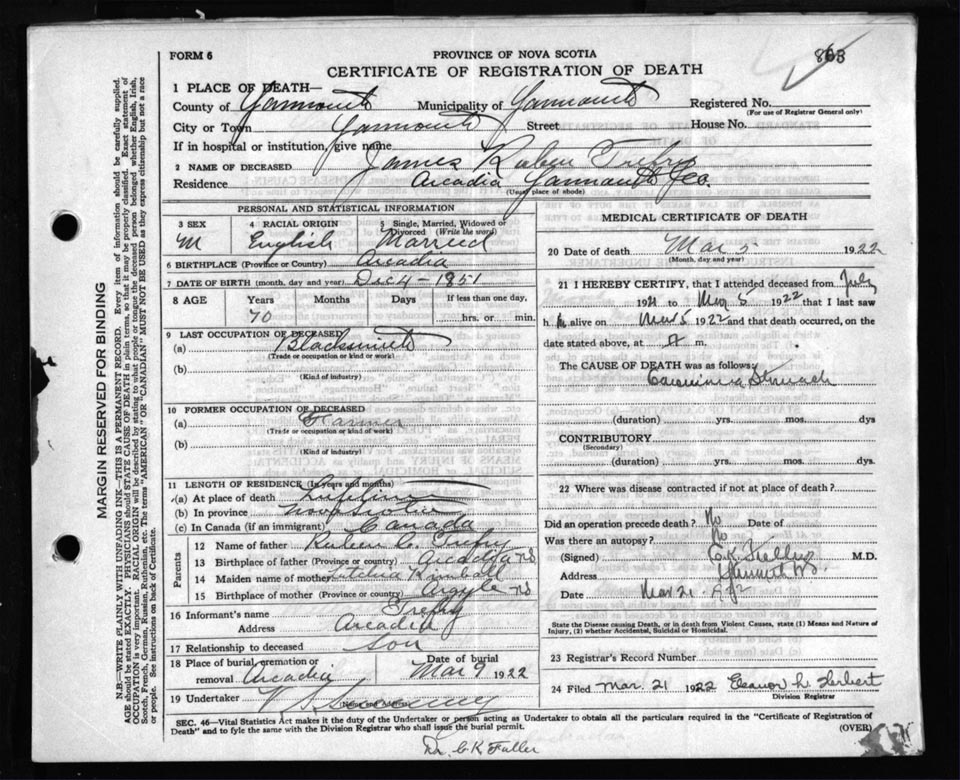 FORM 6
PROVINCE OF NOVA SCOTIA
CERTIFICATE OF REGISTRATION OF DEATH
1 PLACE OF DEATH—
County of Yarmouth Municipality of Yarmouth Registered No.
(For use of Registrar General only)
City or Town Yarmouth Street House No.
If in hospital or institution, give name
2 NAME OF DECEASED James Ruben Trefry
Residence Arcadia Yarmouth Co.
(Usual place of abode)
PERSONAL AND STATISTICAL INFORMATION
3 SEX 4 RACIAL ORIGIN 5 Single, Married, Widowed or Divorced (Write the word)
M English Married
6 BIRTHPLACE (Province or Country) Arcadia
7 DATE OF BIRTH (month, day and year) Dec 4 - 1851
8 AGE Years Months Days If less than one day,
70 hrs. or min.
9 LAST OCCUPATION OF DECEASED
(a) Blacksmith
(Trade or occupation or kind or work)
(b)
(Kind of industry)
10 FORMER OCCUPATION OF DECEASED
(a) Farmer
(Trade or occupation or kind of work)
(b)
(Kind of industry)
11 LENGTH OF RESIDENCE (In years and months)
(a) At place of death Lifetime
(b) In province Nova Scotia
(c) In Canada (if an immigrant) Canada
Parents
12 Name of father Ruben C. Trefry
13 Birthplace of father (Province or country) Arcadia NS
14 Maiden name of mother Kimball
15 Birthplace of mother (Province or country) Argyle NS
16 Informant's name Trefry
Address Arcadia
17 Relationship to deceased Son
18 Place of burial, cremation or removal Arcadia Date of burial Mar 9 1922
19 Undertaker V S Sweeny
MEDICAL CERTIFICATE OF DEATH
20 Date of death Mar 5 1922
(Month, day and year)
21 I HEREBY CERTIFY, that I attended deceased from July
1921 to Mar 5 1922 that I last saw
h alive on Mar 5 1922 and that death occurred, on
date stated above, at m.
The CAUSE OF DEATH was as follows:
Carcinoma Stomach
(duration) yrs. mos. dys
CONTRIBUTORY
(Secondary)
(duration) yrs. mos. dys.
22 Where was disease contracted if not at place of death?
Did an operation precede death? No Date of
Was there an autopsy? No
(Signed) C.K. Fuller M.D.
Address Yarmouth NS
Date Mar 21
State the Disease causing Death, or in death from Violent Causes, state (1) Means and Nature of Injury, (2) whether Accidental, Suicidal or Homicidal.
23 Registrar's Record Number
24 Filed Mar. 21 1922 Eleanor L. Herbert
Division Registrar
SEC. 46—Vital Statistics Act makes it the duty of the Undertaker or person acting as Undertaker to obtain all the particulars required in the "Certificate of Registration of
Death" and to fyle the same with the Division Registrar who shall issue the burial permit. (OVER)
Dr. C K Fuller
MARGIN RESERVED FOR BINDING
N.B.—WRITE PLAINLY WITH UNFADING INK—THIS IS A PERMANENT RECORD. Every item of information should be carefully supplied.
AGE should be stated EXACTLY. PHYSICIANS should STATE CAUSE OF DEATH in plain terms, so that it may be properly classified. Exact statement of
OCCUPATION is very important. RACIAL ORIGIN will be described by stating to what people or tongue the deceased person belonged whether English, Irish,
Scotch, French, German, Russian, Ruthenian, etc. The terms "AMERICAN" or "CANADIAN" MUST NOT BE USED as they express citizenship but not a race
or people. See instructions on back of Certificate.